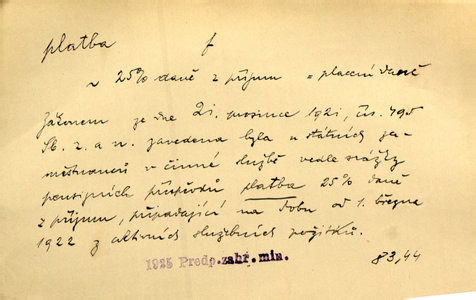 platba f
~ 25% daně z příjmu = placení daně
Zákonem ze dne 21. prosince 1921, čís. 495
Sb. z. a n. zavedena byla u státních za-
městnanců v činné službě vedle srážky
pensijních příspěvků platba 25% daně
z příjmu, připadající na dobu od 1. března
1922 z aktivních služebních požitků.
1925 Předp. zahr. min. 83,44